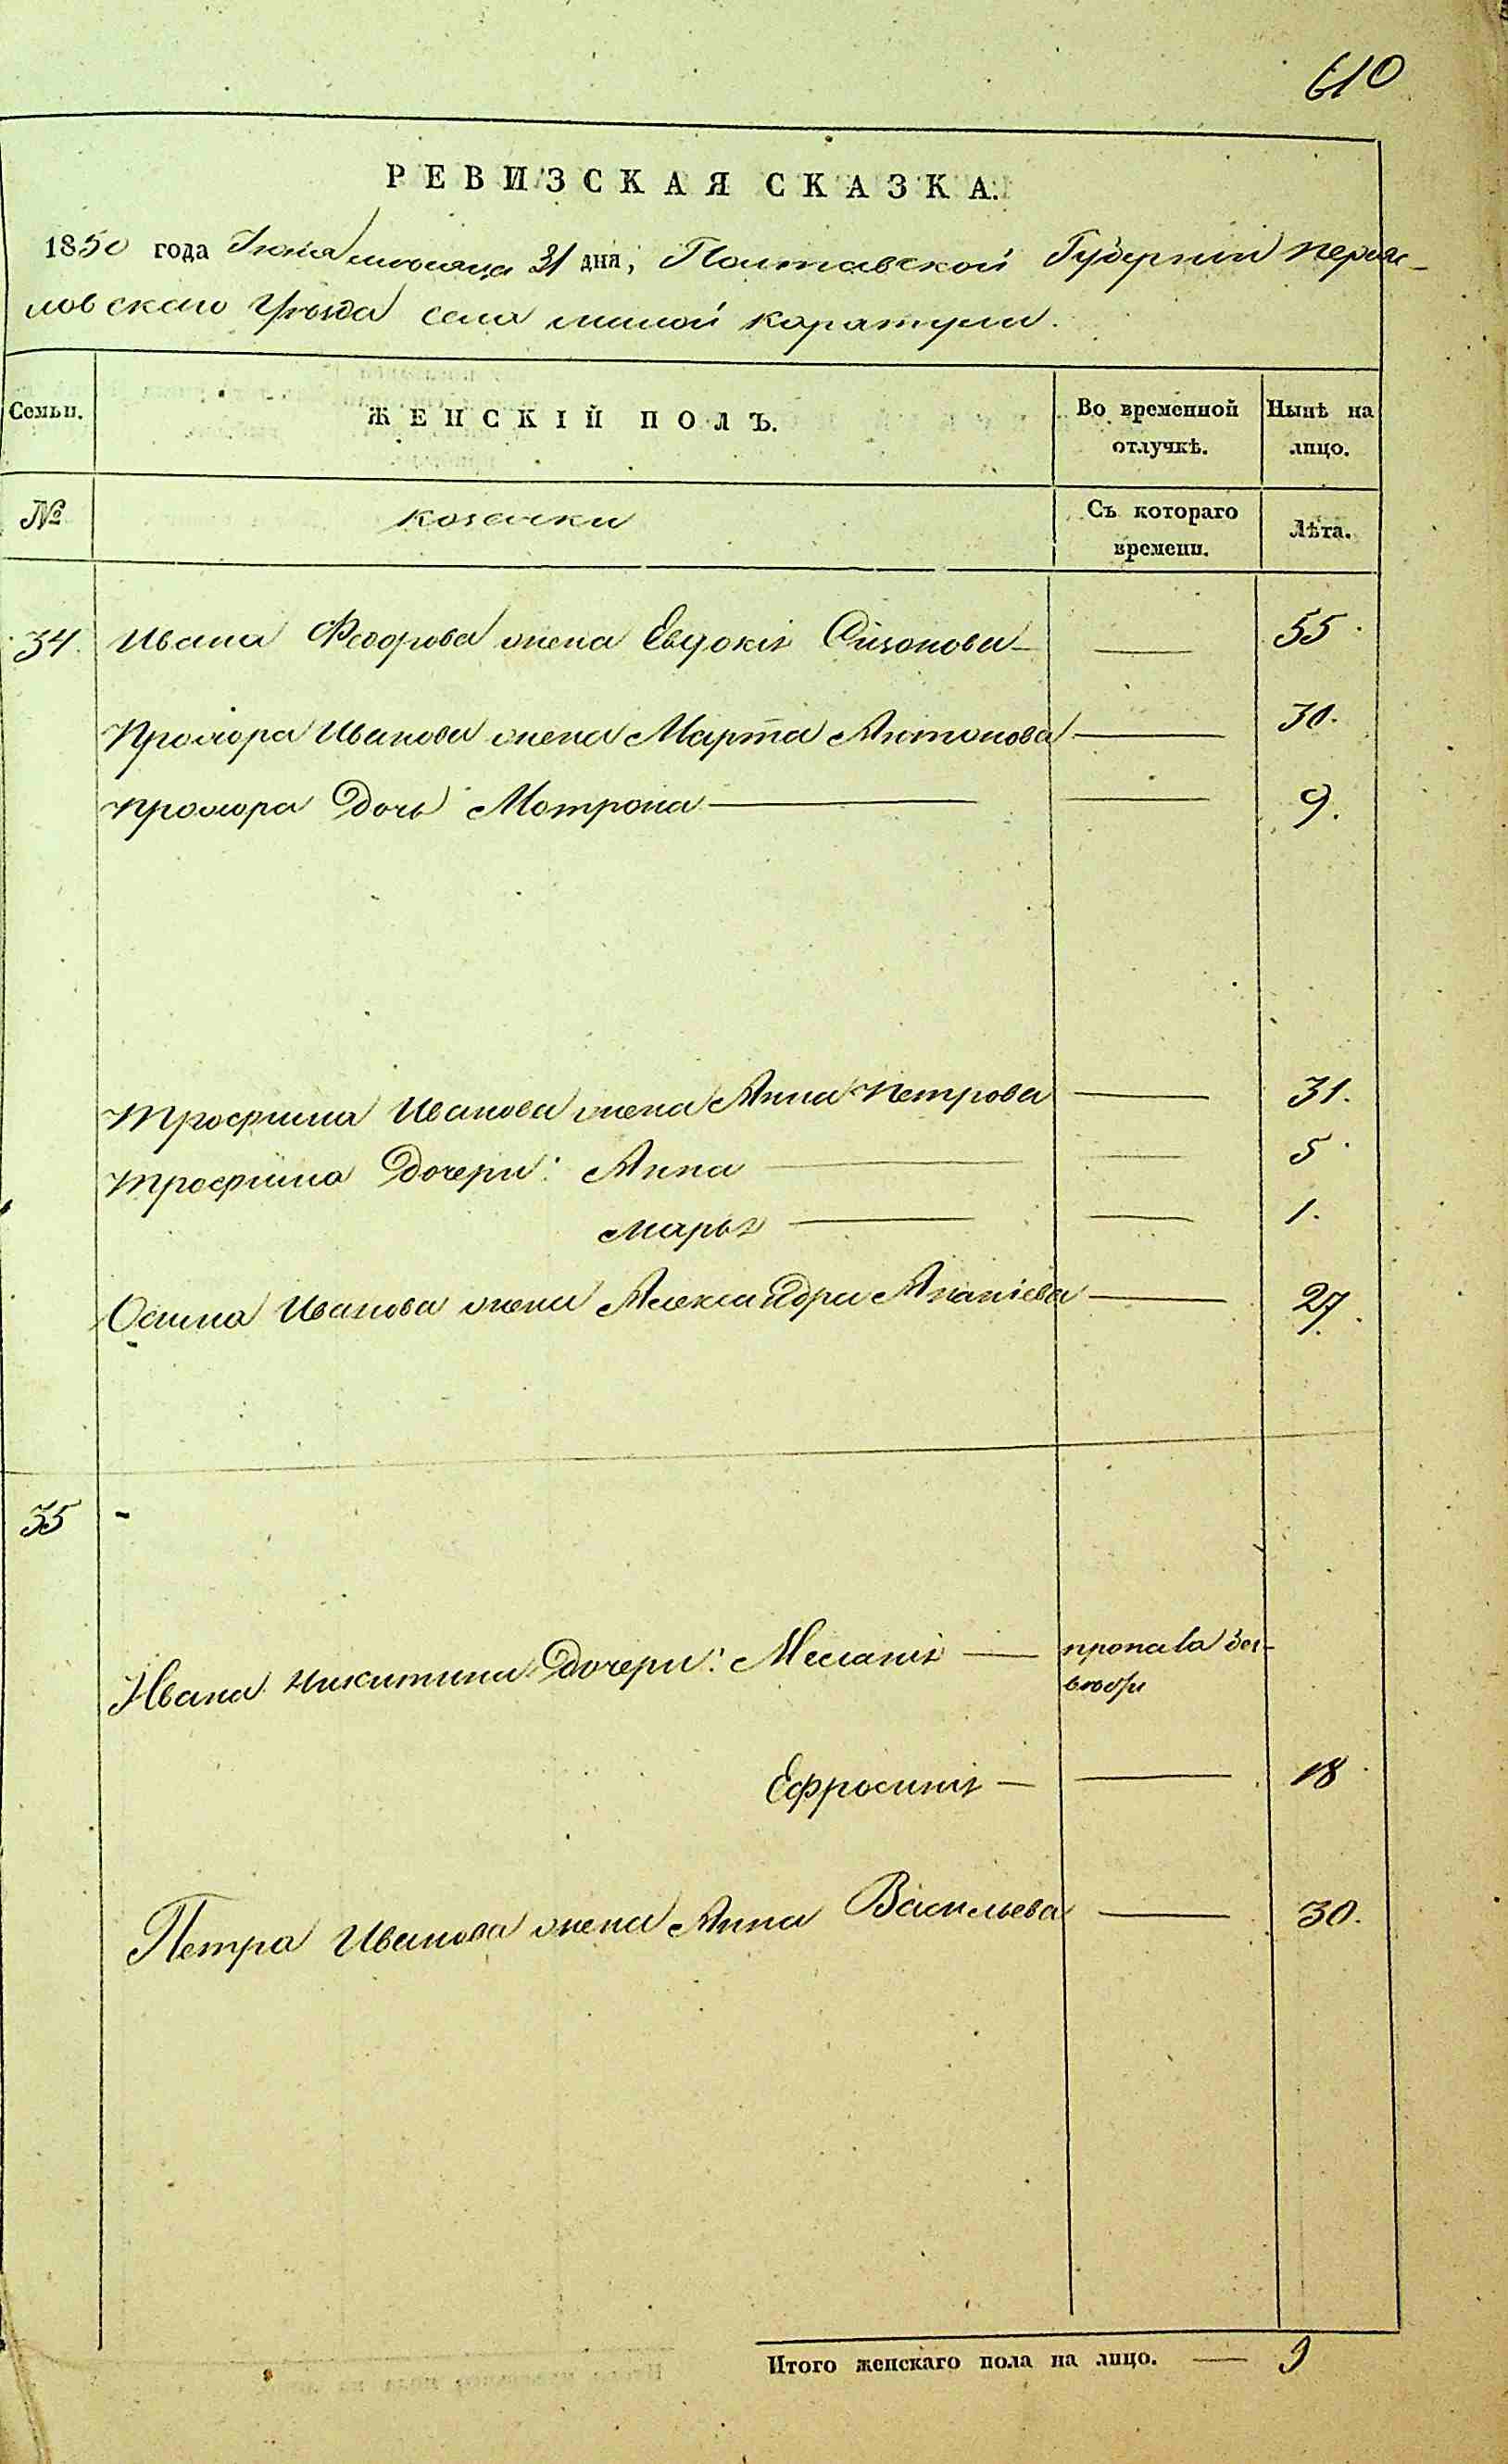 610
РЕВИЗСКАЯ СКАЗКА.
1850 года Іюля мѣсяца 31 дня, Полтавской Губерніи Переяс-
ловскаго Уѣзда села малой каратули.
Семьи. ЖЕНСКІЙ ПОЛЪ. Во временной отлучкѣ. Нынѣ на лицо.
№ козачки Съ котораго времени. Лѣта.
34. Ивана Федорова жена Евдокія Сизонова — — 55.
Прохора Иванова жена Марта Антонова — 30.
Прохора Дочь Мотрона — — 9.
Трофима Иванова жена Анна Петрова — 31.
Трофима Дочери: Анна — — 5.
Марья — — 1.
Осипа Иванова жена Александра Ананіева — 27.
35 -
Ивана Никитина Дочери: Меланія — пропала без-
Ефросинія — — 18
Петра Иванова жена Анна Васильева — 30.
Итого женскаго пола на лицо. — 9